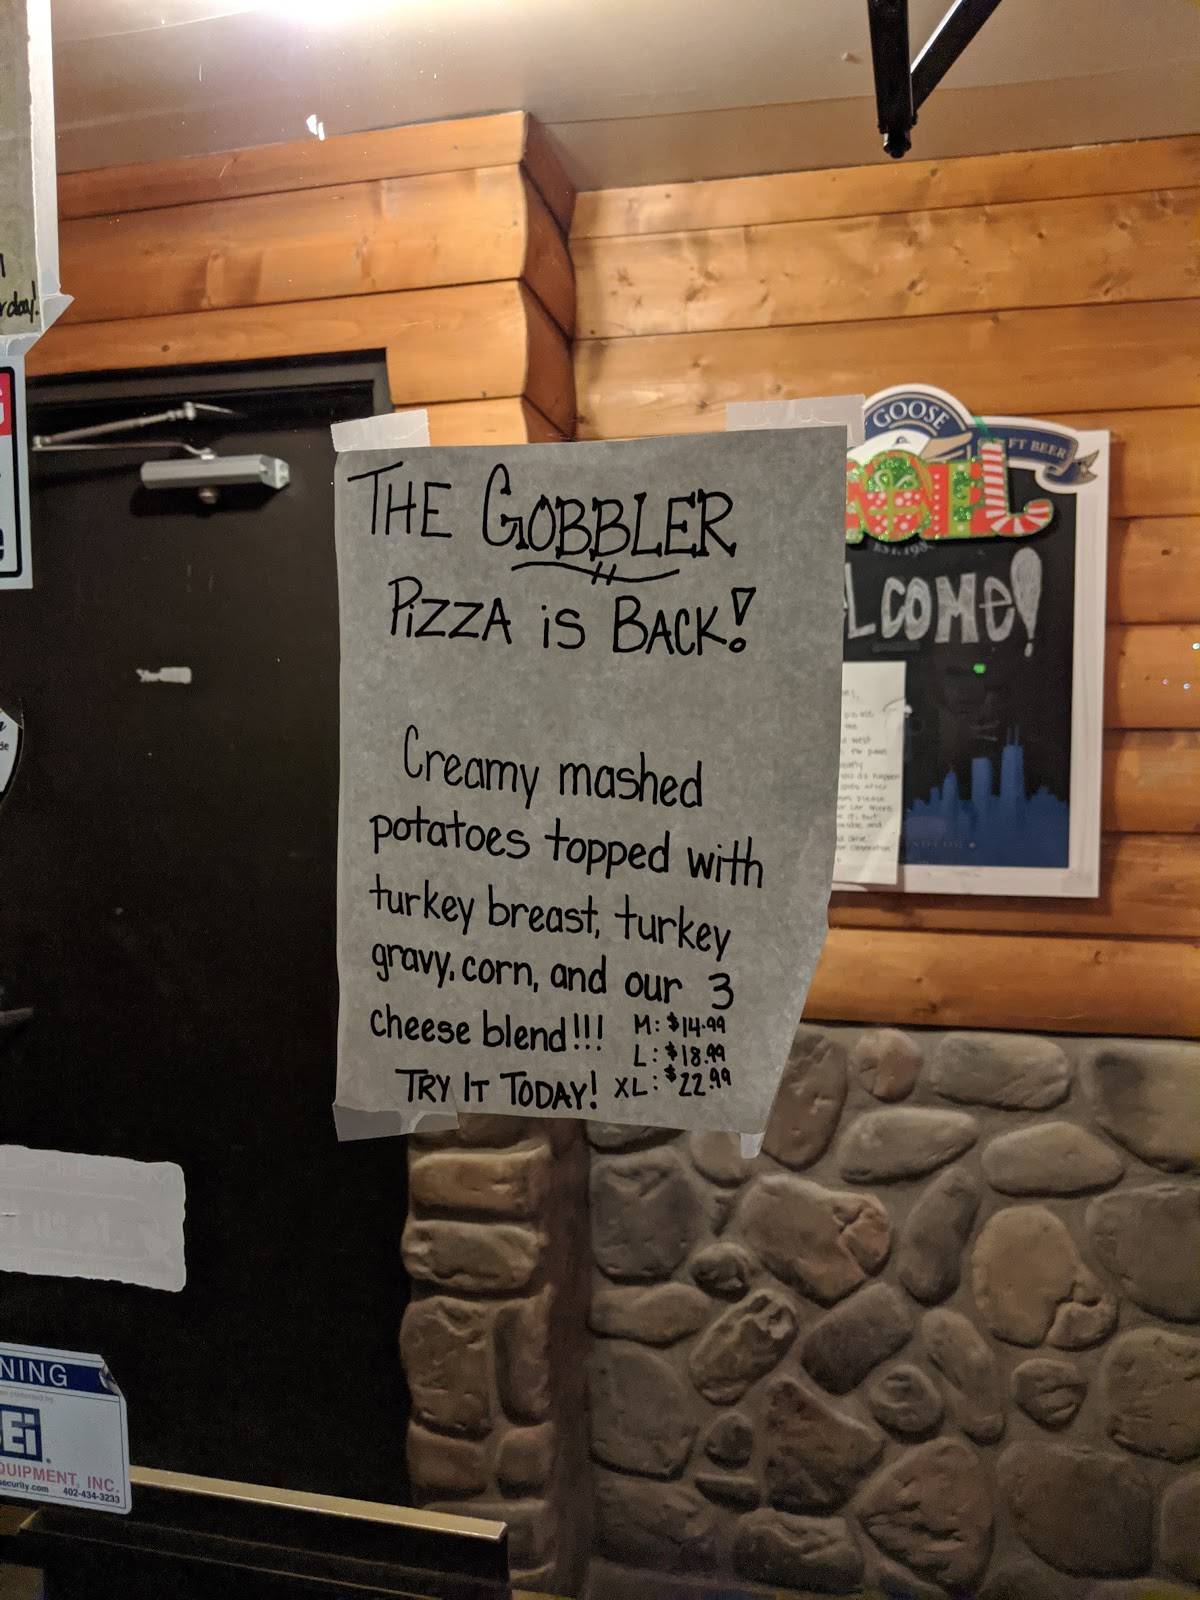 THE GOBBLER
PIZZA IS BACK!
Creamy mashed
potatoes topped with
turkey breast, turkey
gravy, corn, and our 3
cheese blend!!!
M: $14.99
L: $18.99
XL: $22.99
TRY IT TODAY!
GOOSE
FT BEER
NOEL
LCOME!
rday!
NING
Ei
QUIPMENT, INC.
security.com 402-434-3233